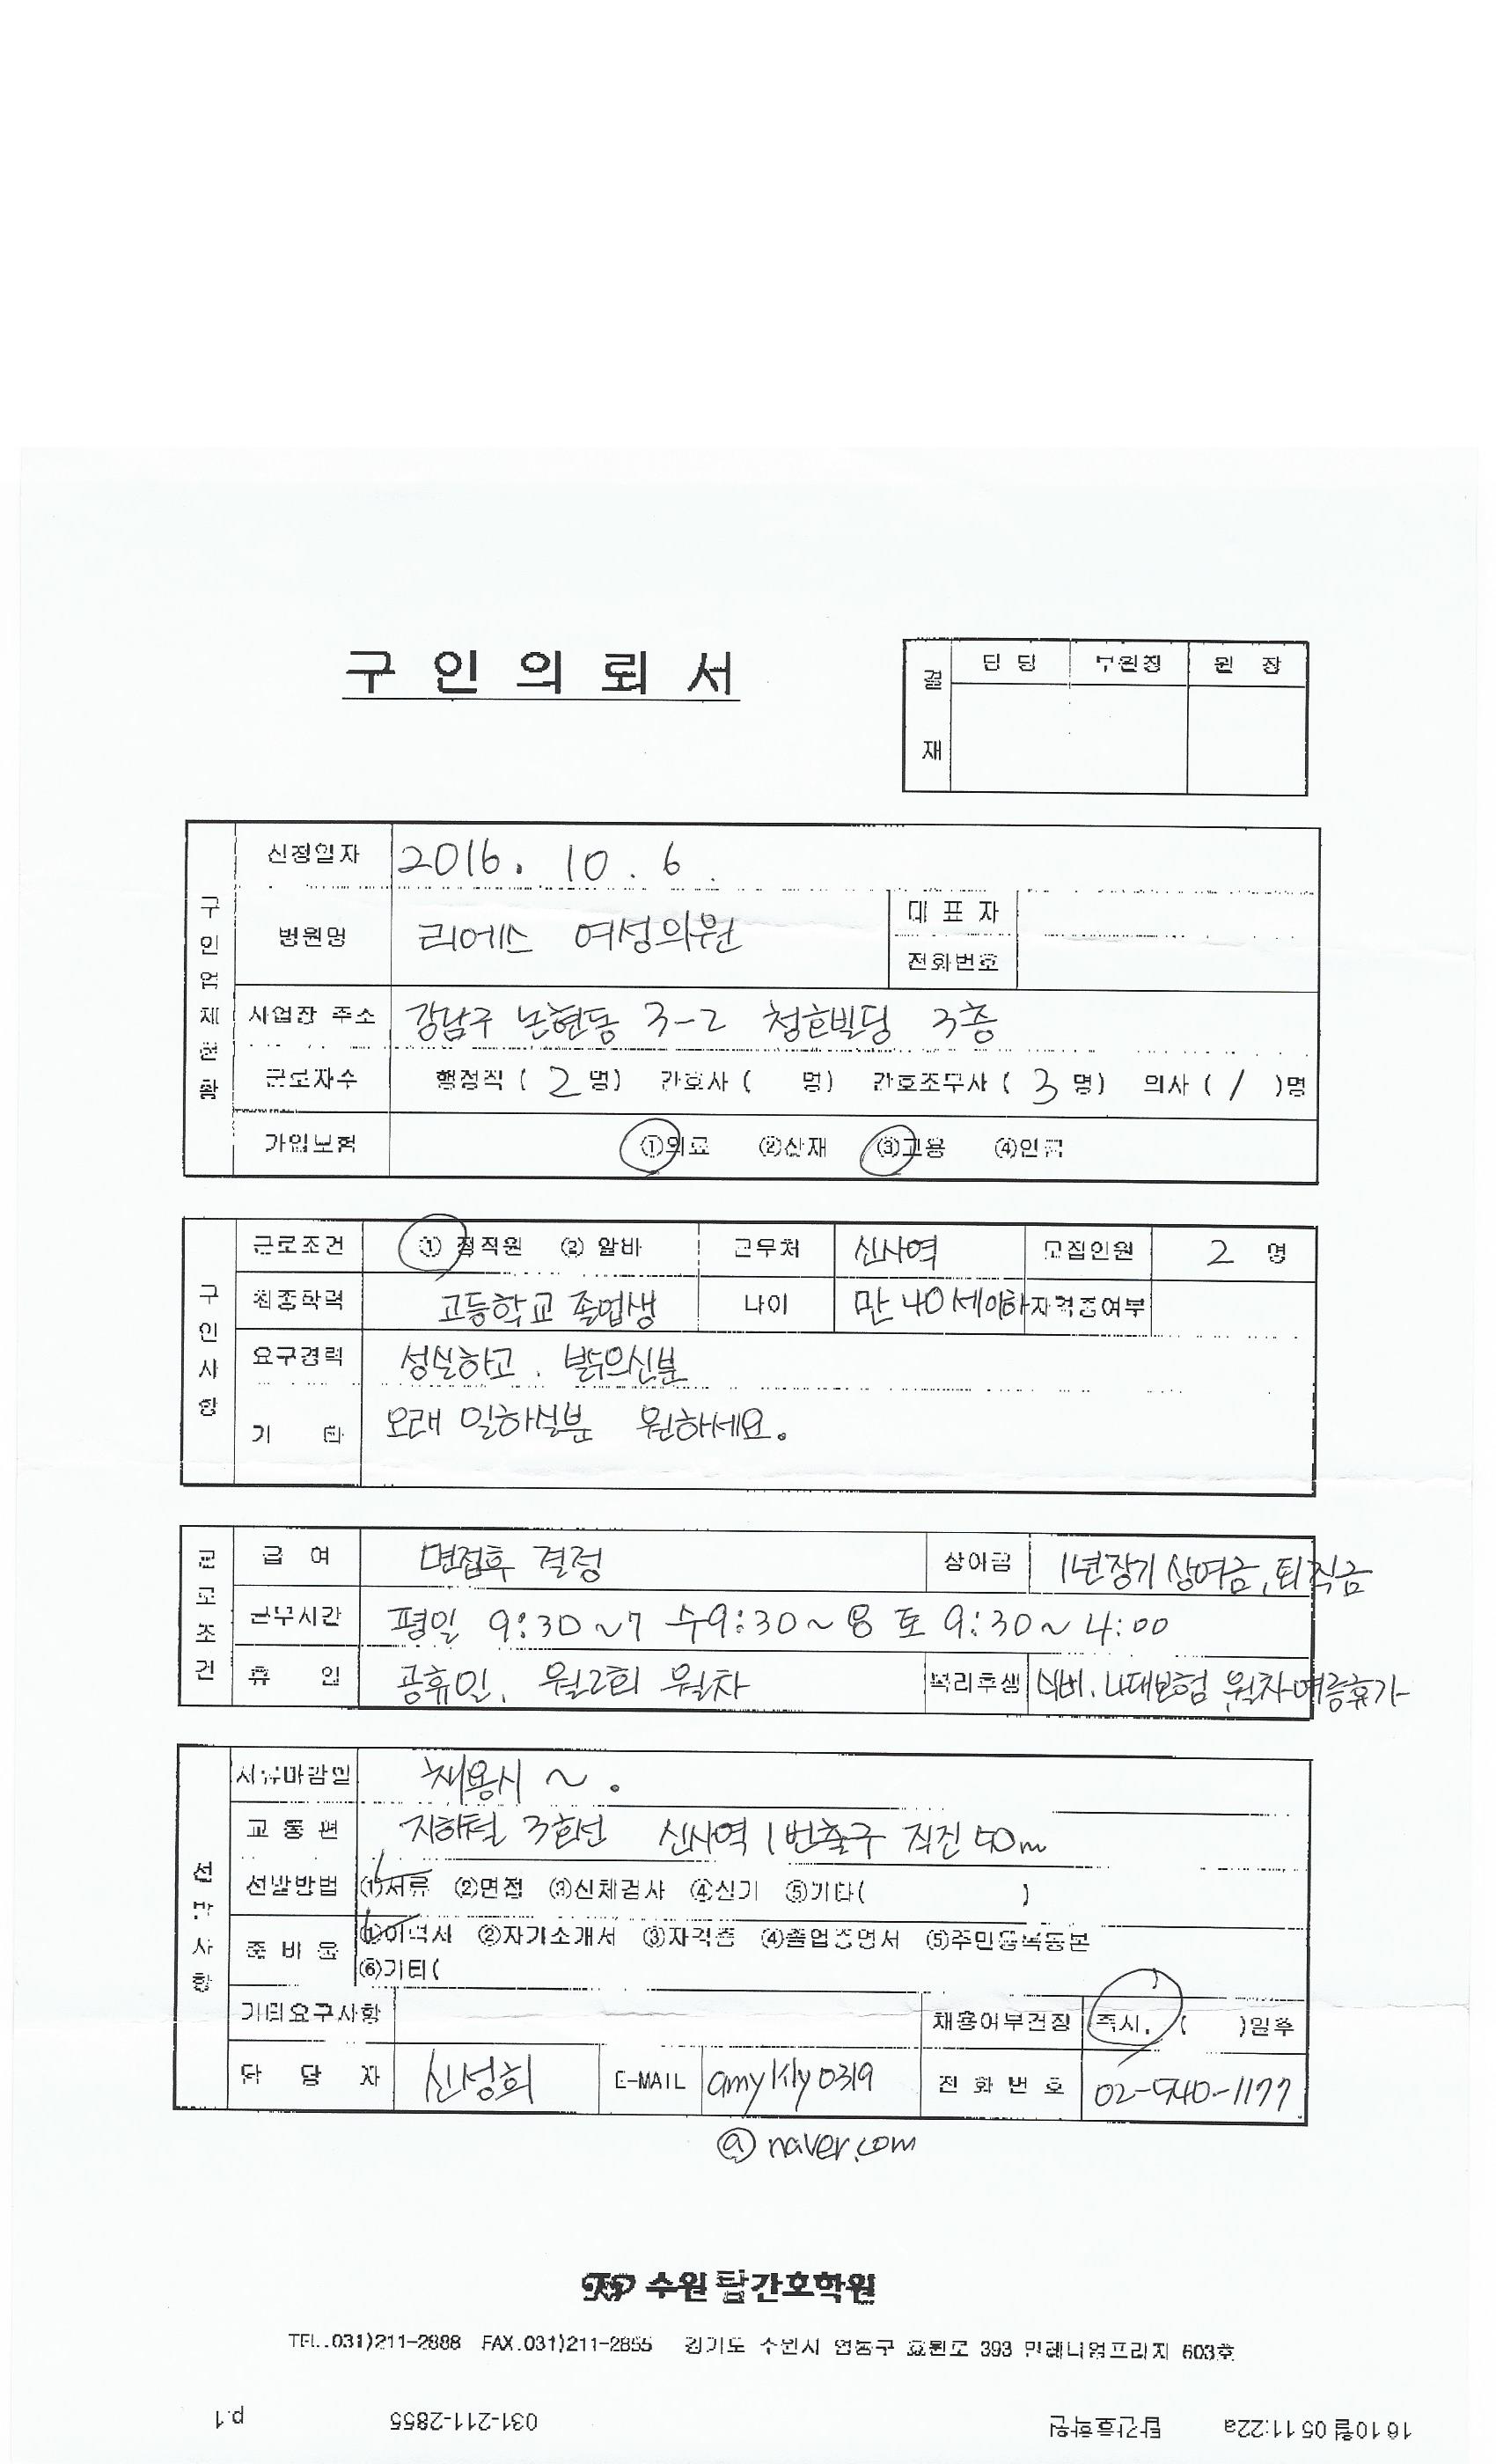 구 인 의 뢰 서
결 재
담 당 부원장 원 장
구인업체현황
신청일자 2016. 10. 6.
병원명 리에스 여성의원 대 표 자
전화번호
사업장 주소 강남구 논현동 3-2 청호빌딩 3층
근로자수 행정직 ( 2 명) 간호사 ( 명) 간호조무사 ( 3 명) 의사 ( / )명
가입보험 ①의료 ②산재 ③고용 ④연금
구인사항
근로조건 ① 정직원 ② 알바 근무처 신사역 모집인원 2 명
최종학력 고등학교 졸업생 나이 만 40세이하 자격증여부
요구경력 성실하고. 밝으신분
기 타 오래 일하실분 원하세요.
근로조건
급 여 면접후 결정 상여금 1년장기 상여금, 퇴직금
근무시간 평일 9:30~7 수9:30~8 토 9:30~4:00
휴 일 공휴일, 월2회 월차 복리후생 식비. 4대보험 월차 여름휴가
선발사항
서류마감일 채용시 ~.
교 통 편 지하철 3호선 신사역 1번출구 직진 50m
선발방법 ①서류 ②면접 ③신체검사 ④실기 ⑤기타( )
준 비 물 ①이력서 ②자기소개서 ③자격증 ④졸업증명서 ⑤주민등록등본
⑥기타( )
기타요구사항 채용여부건장 즉시, ( )일후
담 당 자 신성희 E-MAIL 전 화 번 호 02-540-1177
@naver.com
수원 탑간호학원
TEL.031)211-2888 FAX.031)211-2855 경기도 수원시 영통구 효원로 393 밀레니엄프라자 603호
16 10월 05 11:22a 탑간호학원 031-211-2855 p.1